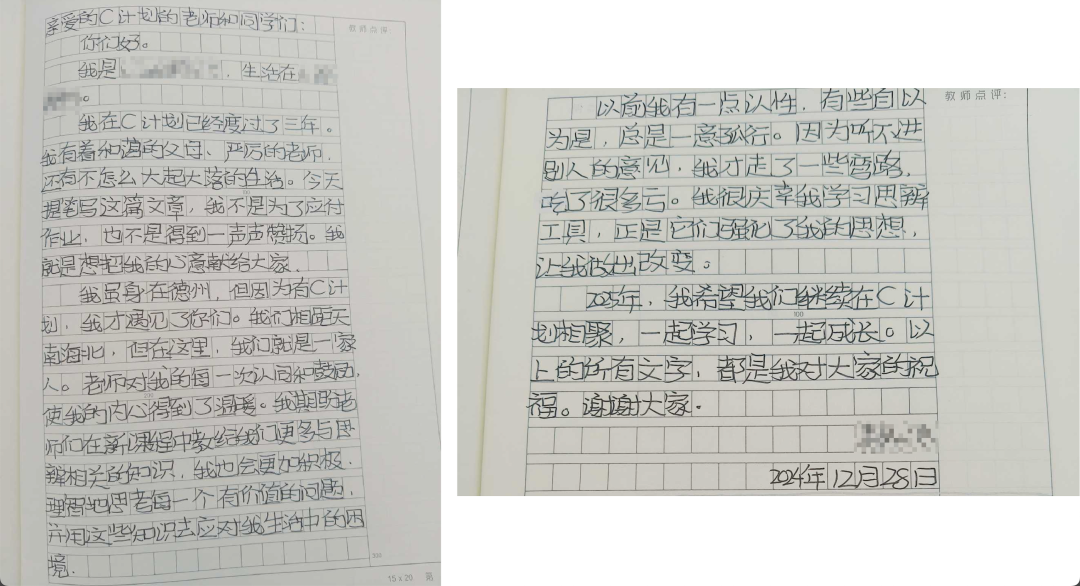 亲爱的C计划的老师和同学们：
教师点评
你们好。
我是
，生活在
。
我在C计划已经度过了三年。
我有着和蔼的父母、严厉的老师，
还有不怎么大起大落的生活。今天
提笔写这篇文章，我不是为了应付
作业，也不是得到一声声赞扬。我
就是想把我的心意献给大家。
我虽身在德州，但因为有C计
划，我才遇见了你们。我们相距天
南海北，但在这里，我们就是一家
人。老师对我的每一次认同和鼓励，
使我的内心得到了温暖。我期盼老
师们在新课程中教给我们更多与思
辨相关的知识，我也会更加积极、
理智地思考每一个有价值的问题，
并用这些知识去应对我生活中的困
境。
300
15×20
教师点评：
以前我有一点认性，有些自以
为是，总是一意孤行。因为听不进
别人的意见，我才走了一些弯路，
吃了很多亏。我很庆幸我学习思辨
工具，正是它们强化了我的思想，
让我做出改变。
2025年，我希望我们继续在C计
100
划相聚，一起学习，一起成长。以
上的所有文字，都是我对大家的祝
福。谢谢大家。
2024年12月28日